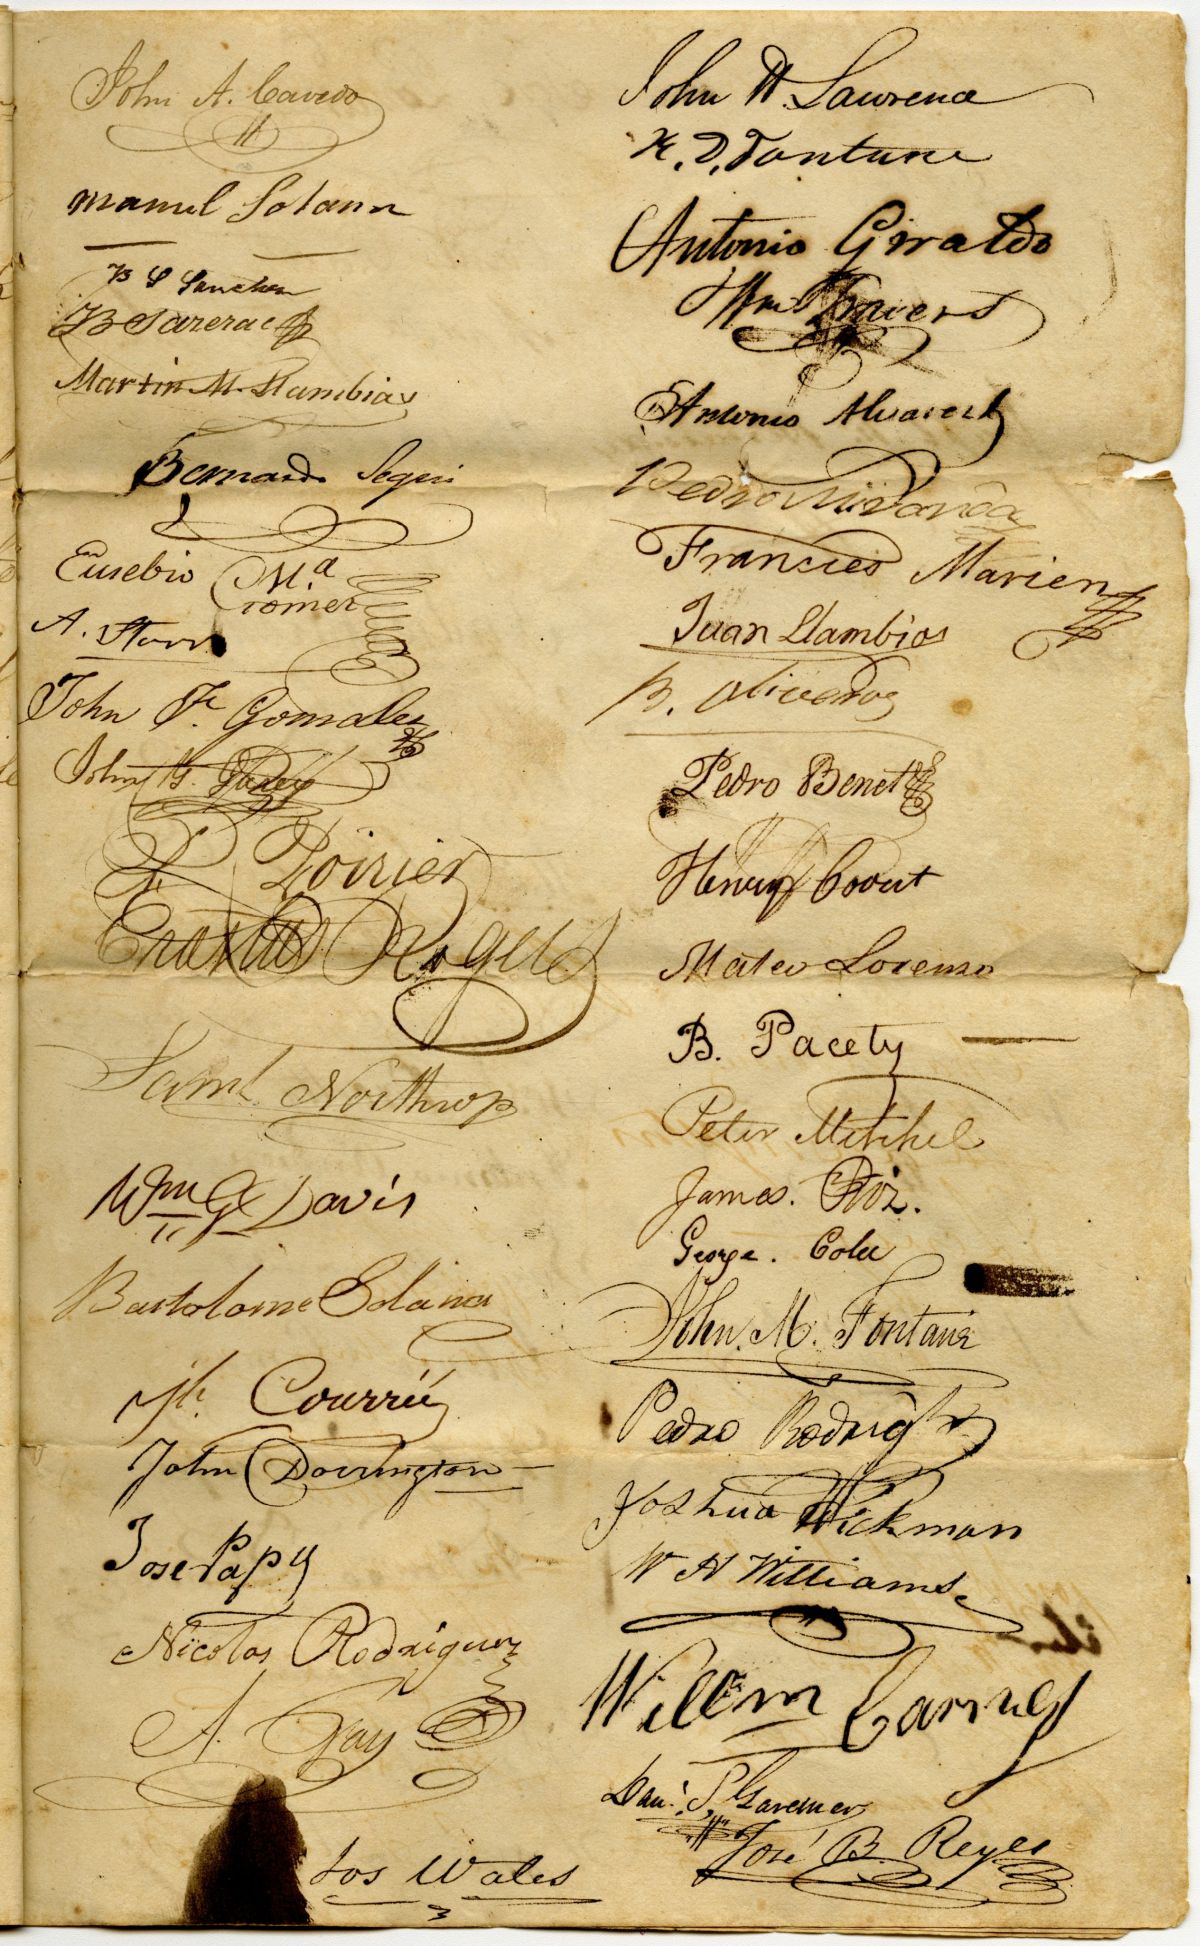 John A. Cavedo
Manuel Solana
B S Sanchez
Martin M. Llambias
Bernardo Segui
Eusebio Ma.
Gomez
A. Storrs
John F. Gonzales
John G.
F. Poirier
Erastus Rogers
Saml. Northrop
Wm G Davis
Bartolome Solana
John Dorrington
Jose Papy
Nicolas Rodriguez
A. Gay
Jos Wales
John W. Lawrence
Antonio Giraldo
Wm Travers
Antonio Alvarez
Pedro Miranda
Francisco Marien
Juan Llambias
B. Oliveros
Pedro Benet
Henry
Mateo Lorenzo
B. Pacety
Peter Mitchel
James. Roz.
George. Cole
John. M. Fontane
Pedro
Joshua Hickman
W H Williams.
Willm Carney
Danl. S. Gardiner
José B. Reyes